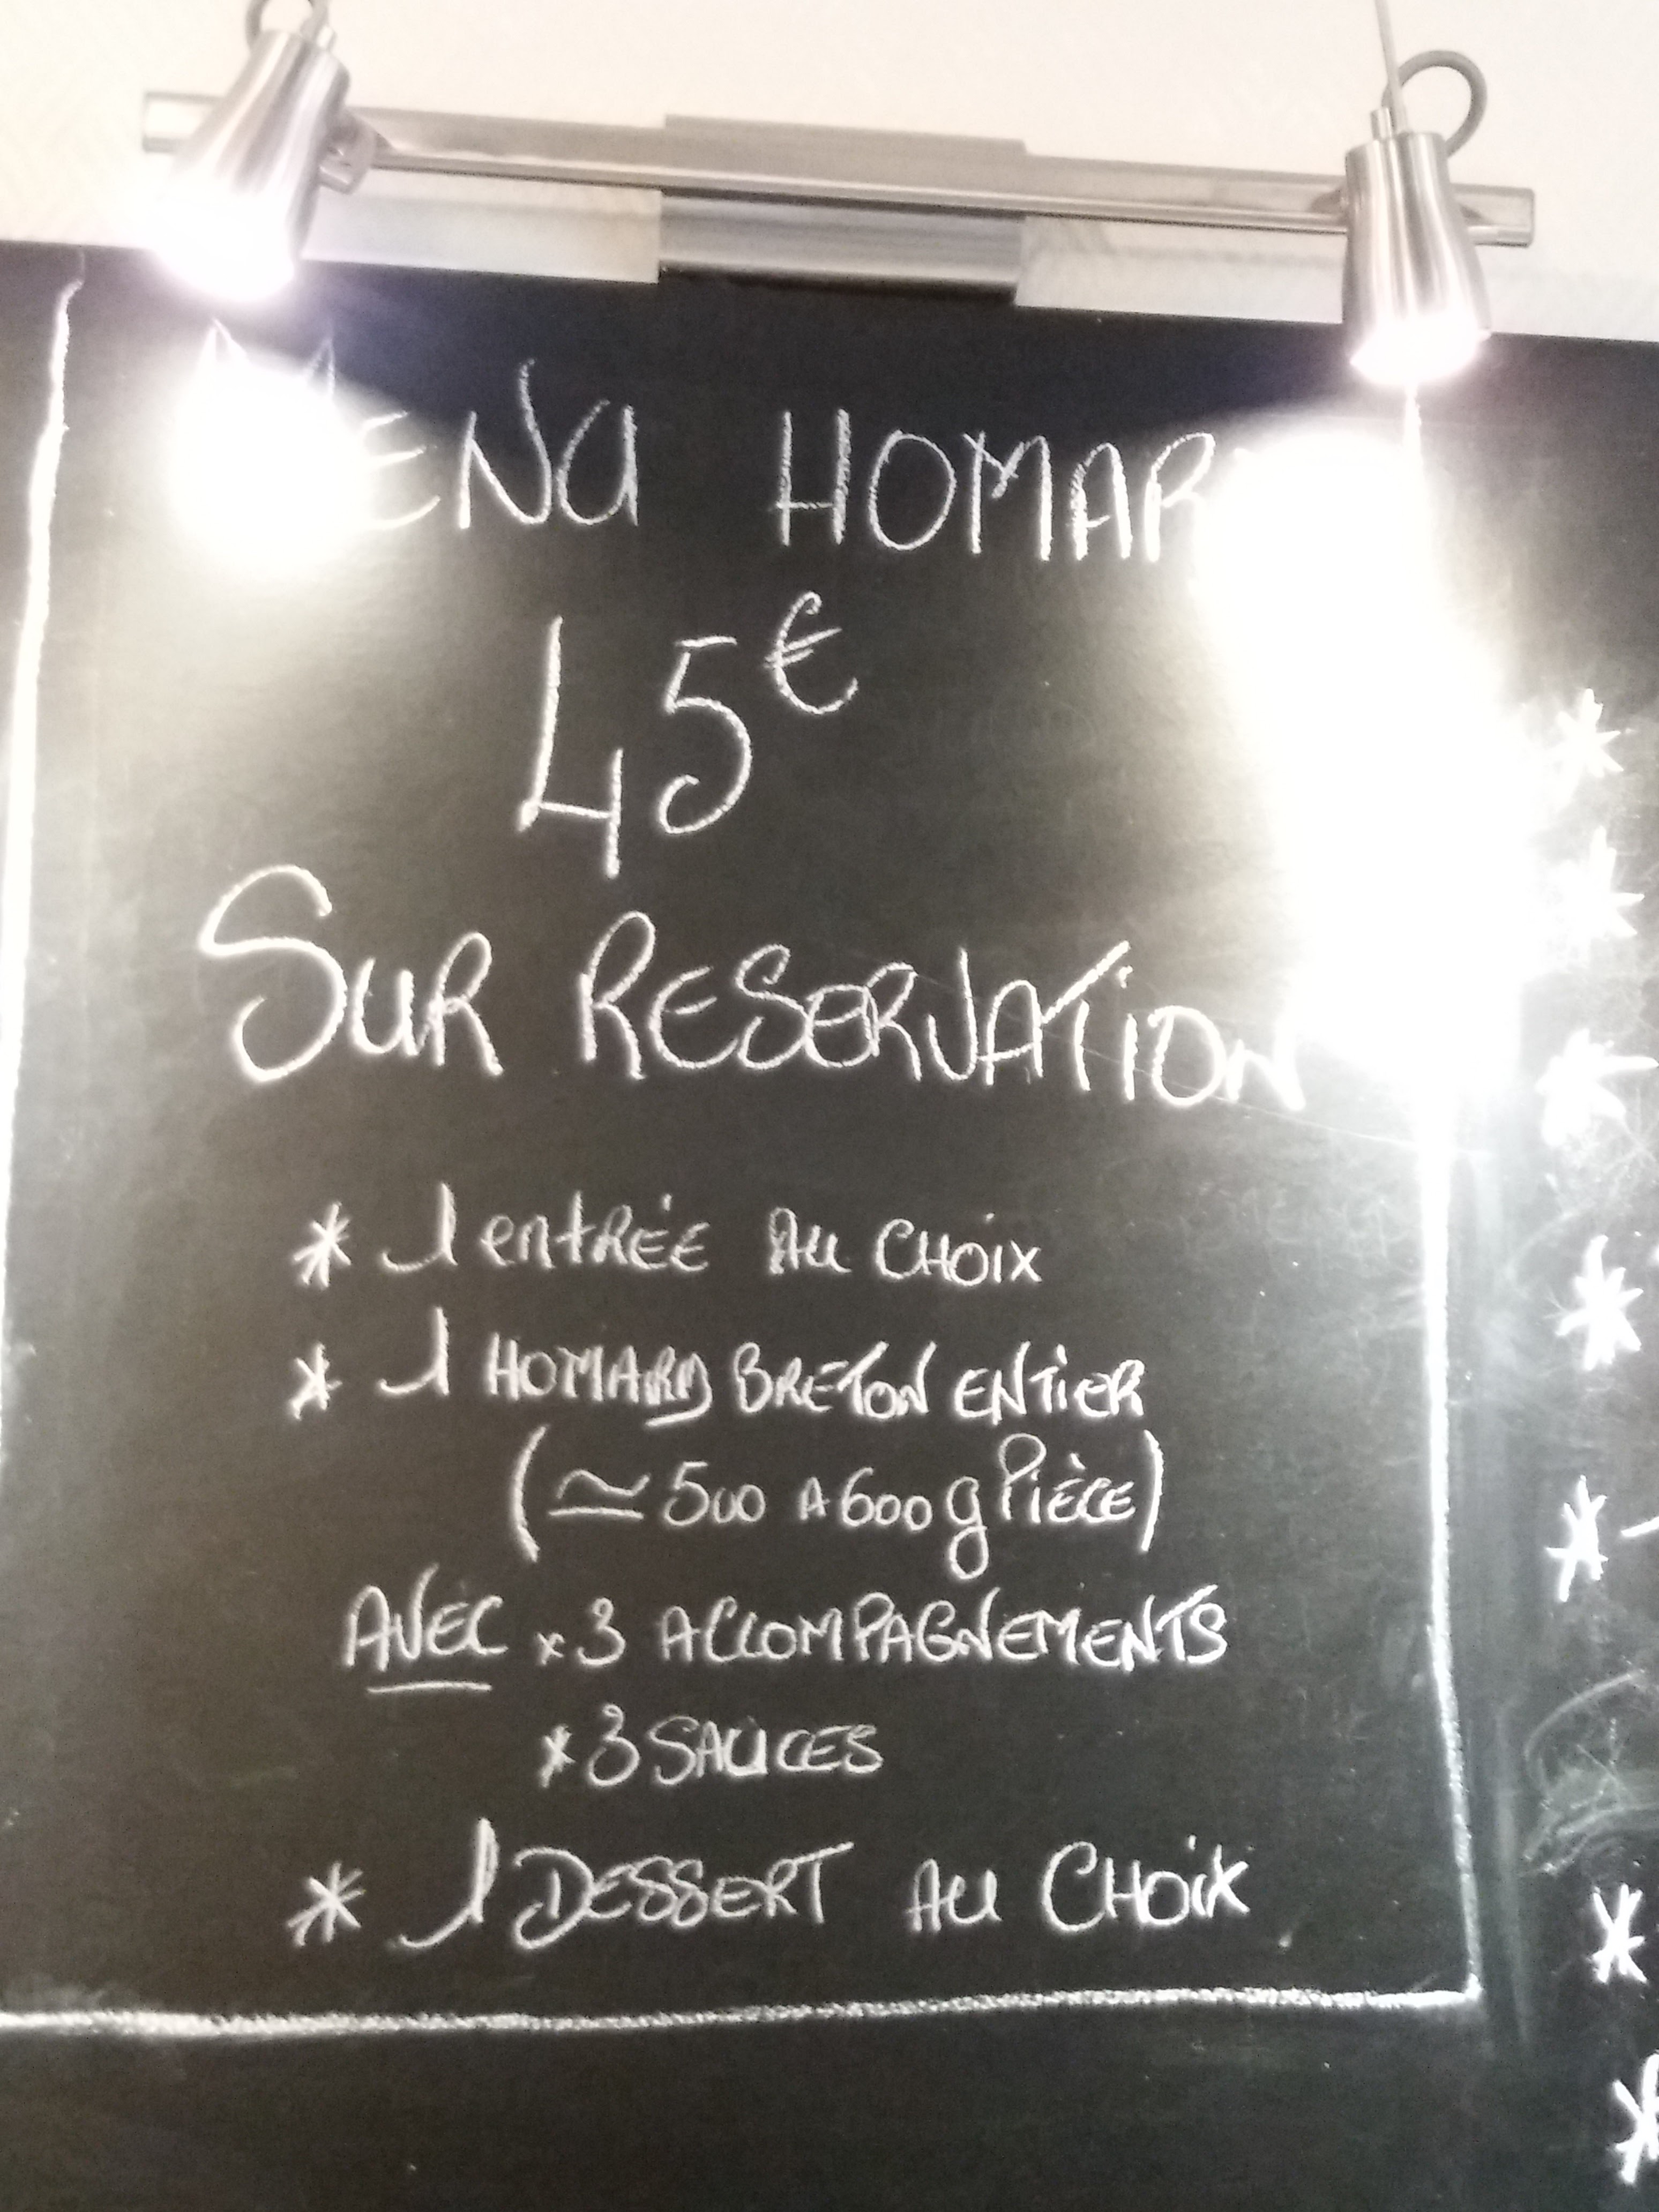 MENU HOMARD
45€
SUR RESERVATION
* 1 entRÉE AU CHOIX
* 1 HOMARD BRETON ENTIER
(≃ 500 A 600 g PIÈCE)
AVEC x 3 ACCOMPAGNEMENTS
x 3 SAUCES
* 1 DESSERT AU CHOIX